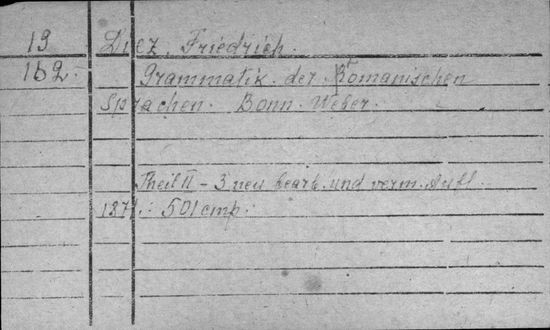 19 Diez, Friedrich.
162. Grammatik der Romanischen
Sprachen. Bonn. Weber.
Theil II - 3 neu bearb. und verm. Aufl.
187 . - 501 стр.